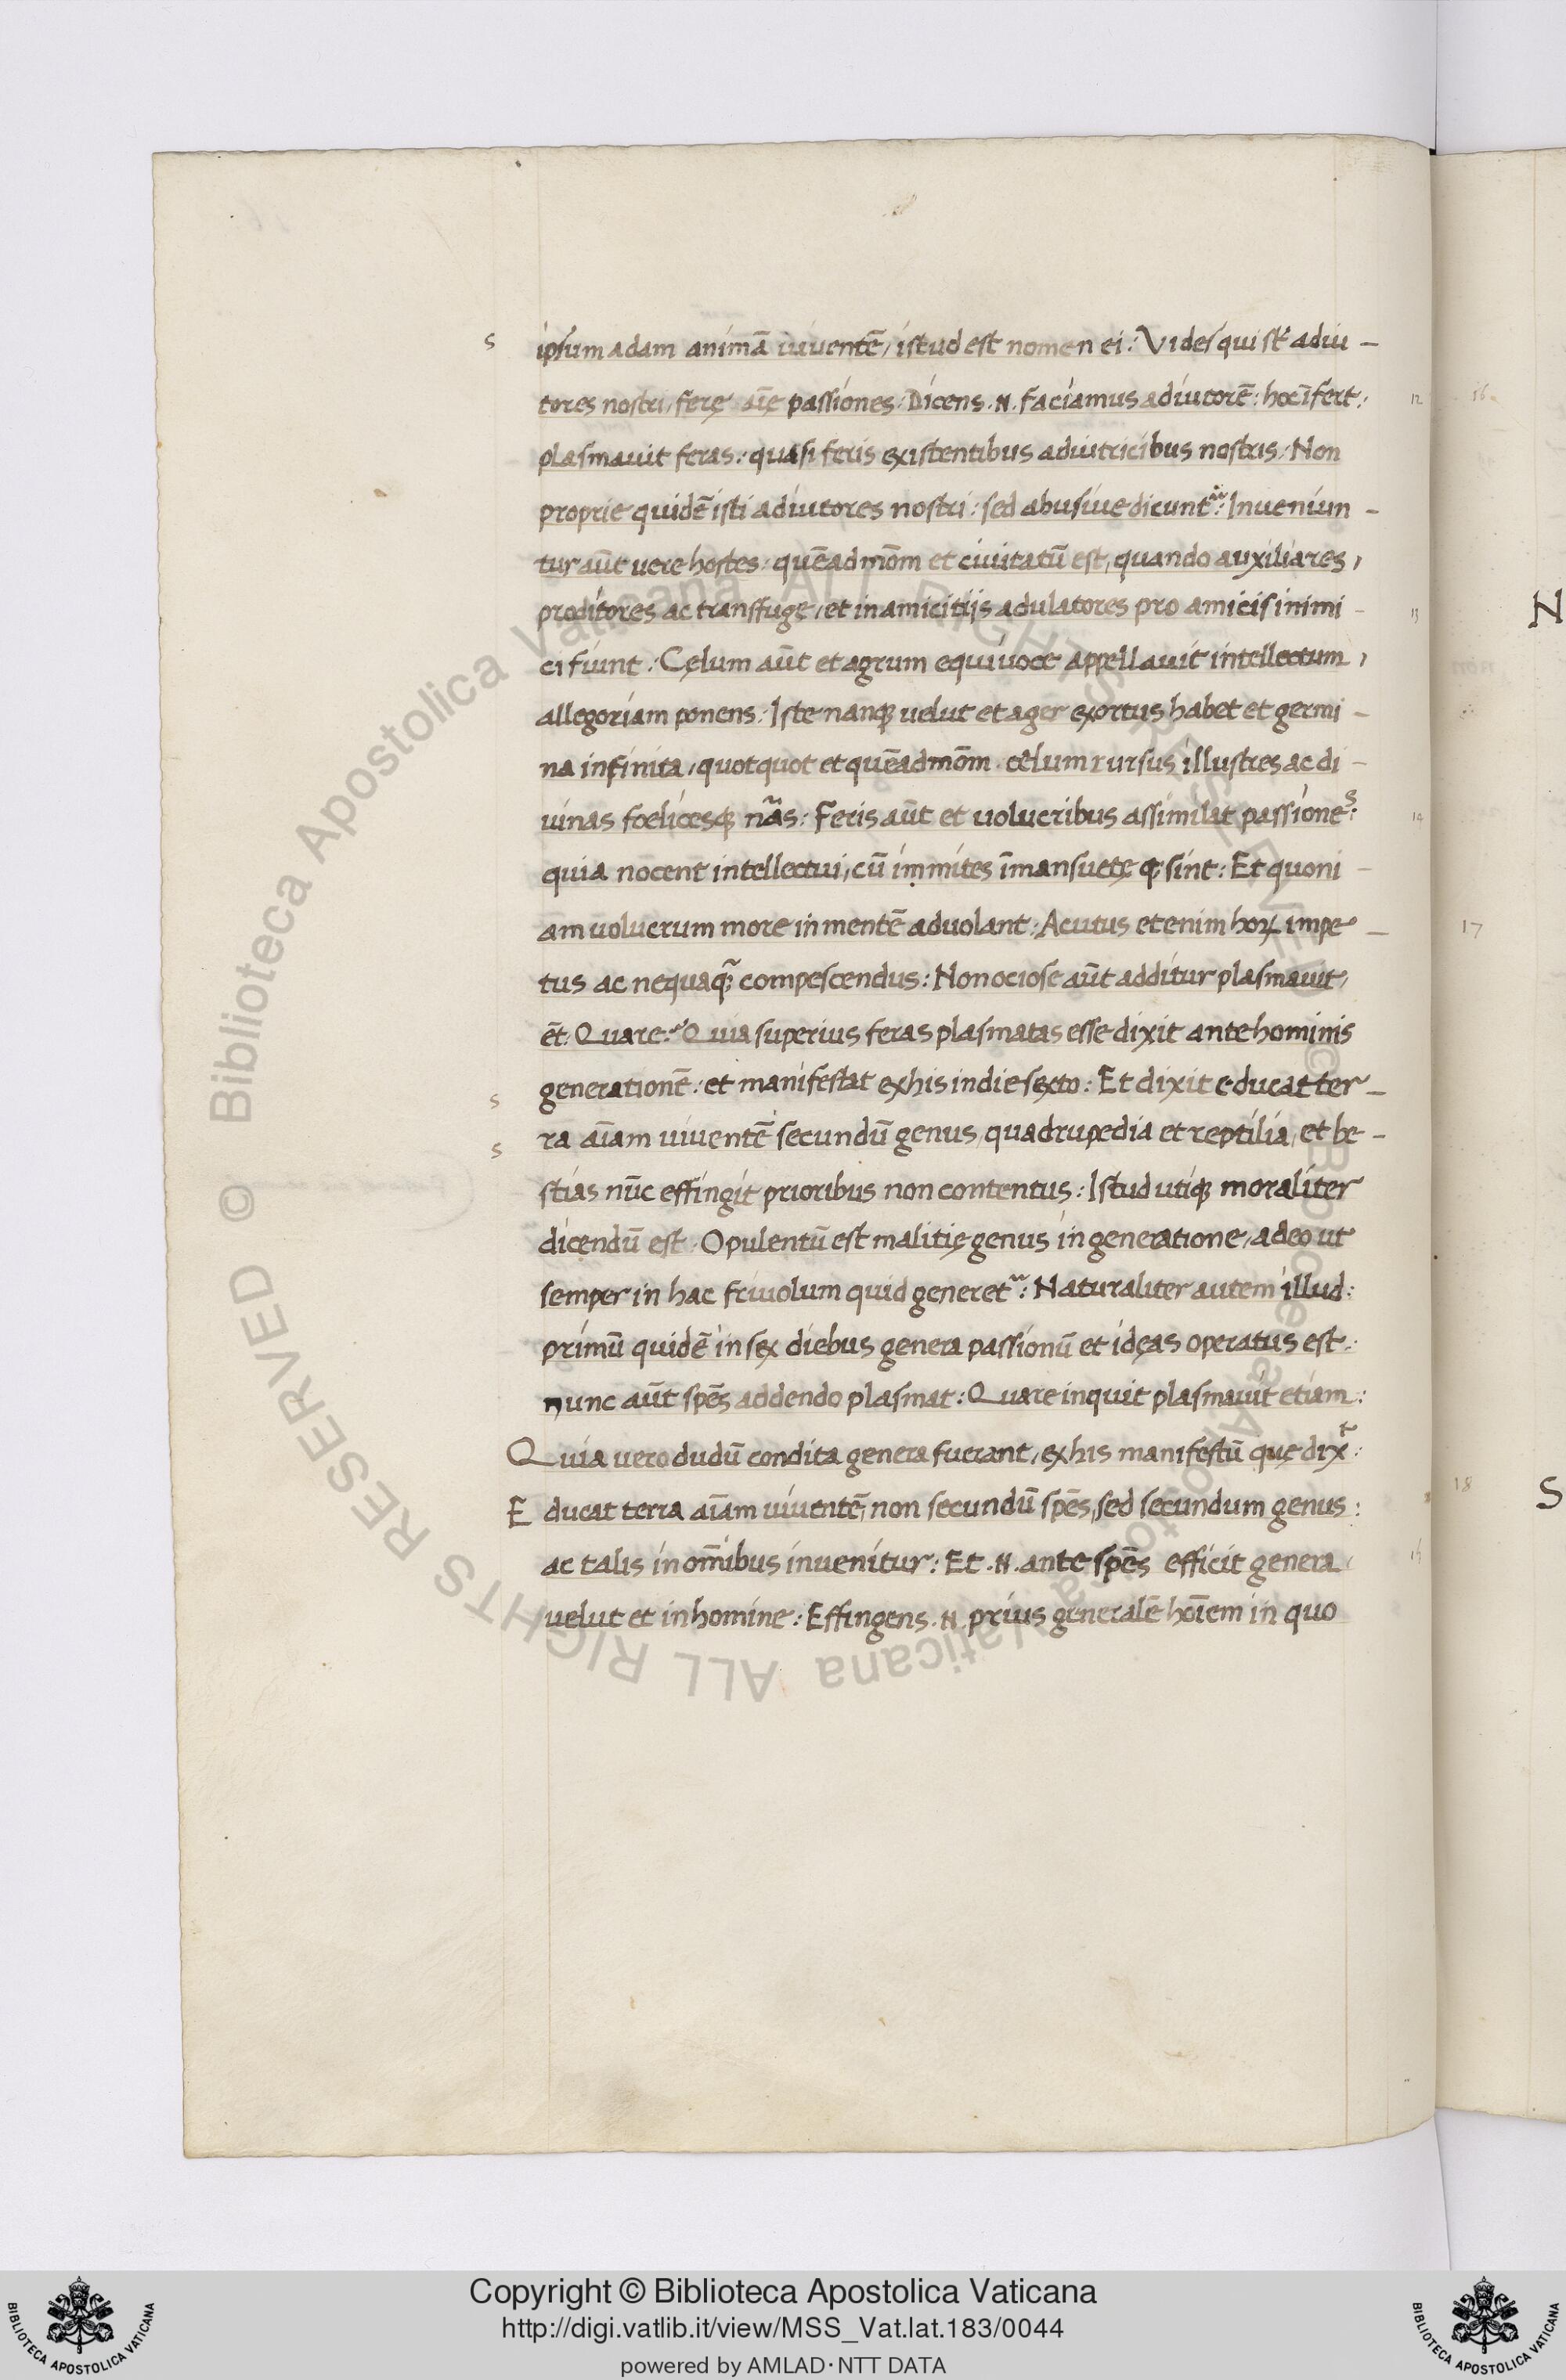 s
ipsum adam animā uiuentē, istud est nomen ei: Vides qui st̄ adiu–
tores nostri, ferę aīę passiones: Dicens .N. faciamus adiutorē: hoc īfert:
12
plasmauit feras: quasi feris existentibus adiutricibus nostris: Non
proprie quidē isti adiutores nostri: sed abusiue dicunt᷑: Inueniun–
tur aūt uere hostes: quēadmōm et ciuitatū est, quando auxiliares,
proditores ac transfuge, et in amicitijs adulatores pro amicis inimi–
13
ci fiunt: Cęlum aūt et agrum equiuoce appellauit intellectum,
allegoriam ponens: Iste nanqꝫ uelut et ager exortus habet et germi–
na infinita, quotquot et quēadmōm. celum rursus illustres ac di–
uinas foelicesqꝫ nãs: Feris aūt et uolucribus assimilat passiones:
14
quia nocent intellectui, cū immites īmansuetę qꝫ sint: Et quoni–
am uolucrum more in mentē aduolant: Acutus etenim hoꝝ impe–
tus ac nequaq̃ꝫ compescendus: Non ociose aūt additur plasmauit,
ēt. Quare? Quia superius feras plasmatas esse dixit ante hominis
s
generationē: et manifestat ex his in die sexto: Et dixit educat ter–
s
ra aīam uiuentē secundū genus, quadrupedia et reptilia, et be–
stias nūc effingit prioribus non contentus: Istud utiqꝫ moraliter
dicendū est. Opulentū est malitię genus in generatione, adeo ut
semper in hac friuolum quid generet᷑: Naturaliter autem illud:
primū quidē in sex diebus genera passionū et ideas operatus est:
nunc aūt spēs addendo plasmat: Quare inquit plasmauit etiam:
Quia uero dudū condita genera fuerant, ex his manifestū quę dixᵗ:
Educat terra aīam uiuentē, non secundū spēs, sed secundum genus:
ac talis in om̄ibus inuenitur: Et .N. ante spēs efficit genera
15
uelut et in homine: Effingens .N. prius generalē hōiem in quo
16
N
17
18
S
Biblioteca Apostolica Vaticana ALL RIGHTS RESERVED ©
Copyright © Biblioteca Apostolica Vaticana
http://digi.vatlib.it/view/MSS_Vat.lat.183/0044
powered by AMLAD·NTT DATA
BIBLIOTECA APOSTOLICA VATICANA
BIBLIOTECA APOSTOLICA VATICANA